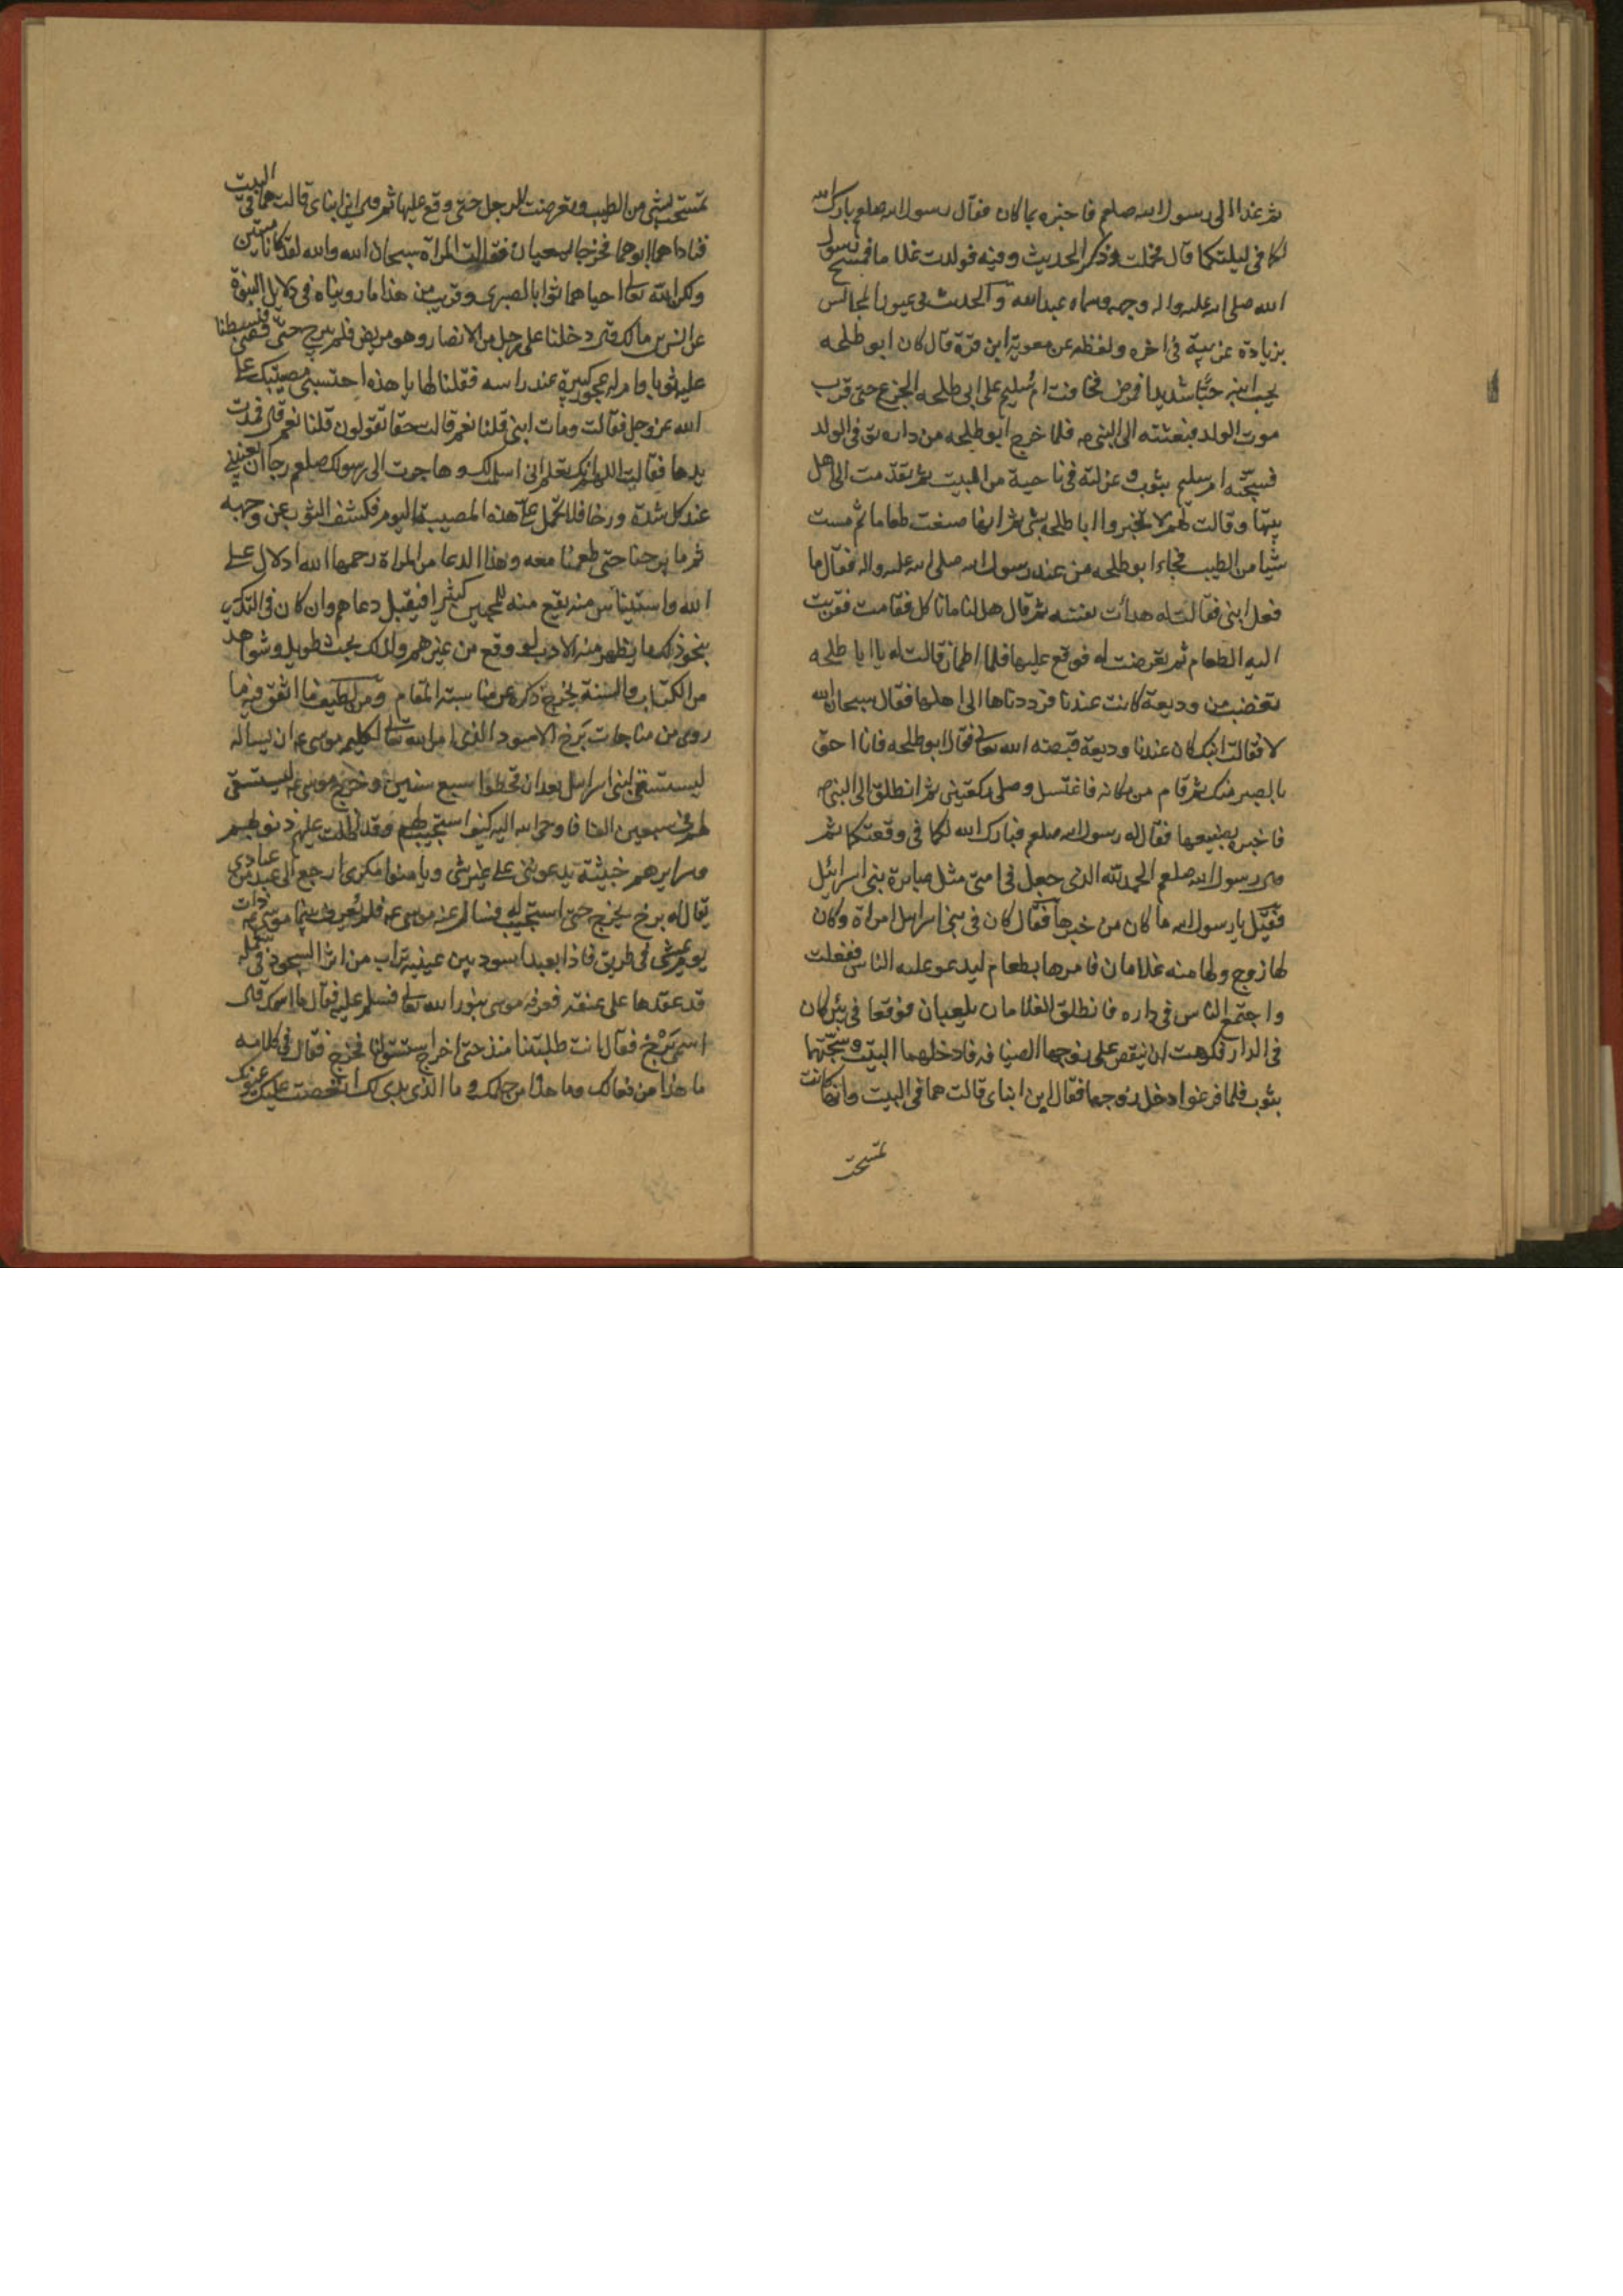 ثم غدا الى رسول الله صلعم فاخبره بما كان فقال رسول الله صلعم بارك الله
لكما في ليلتكما قال فحملت وذكر الحديث وفيه فولدت غلاما فمسح رسول
الله صلى الله عليه واله وجهه وسماه عبدالله والحديث في عيون المجالس
بزيادة غريبة في اخره ولفظه عن معوية ابن قرة قال كان ابو طلحه
يحب ابنه حبا شديدا فمرض فخافت ام سليم على ابي طلحه الجزع حتى قرب
موت الولد فبعثته الى النبي ص فلما خرج ابو طلحه من داره توفي الولد
فسجته ام سليم بثوب وعزلته في ناحية من البيت ثم تقدمت الى اهل
بيتها وقالت لهم لا تخبروا ابا طلحه بشي ثم انها صنعت طعاما ثم مست
شيا من الطيب فجاء ابو طلحه من عند رسول الله صلى الله عليه واله فقال ما
فعل ابني فقالت له هدأت نفسه ثم قال هل لنا ما ناكل فقامت فقربت
اليه الطعام ثم تعرضت له فوقع عليها فلما اطمان قالت له يا ابا طلحه
تغضب من وديعة كانت عندنا فرددناها الى اهلها فقال سبحان الله
لا فقالت ابنك كان عندنا وديعة قبضه الله تعالى فقال ابو طلحه فانا احق
بالصبر منك ثم قام من مكانه فاغتسل وصلى ركعتين ثم انطلق الى النبي ص
فاخبره بصنيعها فقال له رسول الله صلعم فبارك الله لكما في وقعتكما ثم
قال رسول الله صلعم الحمد لله الذي جعل في امتي مثل صابرة بني اسرائيل
فقيل يا رسول الله ما كان من خبرها فقال كان في بني اسرايل امراة وكان
لها زوج ولها منه غلامان فامرها بطعام ليدعو عليه الناس ففعلت
واجتمع الناس في داره فانطلق الغلامان يلعبان فوقعا في بئر كان
في الدار فكرهت ان ينقص على زوجها الضيافه فادخلهما البيت وسجتهما
بثوب فلما فرغوا دخل زوجها فقال اين ابناي قالت هما في البيت وانها كانت
تمسحت
تمسحت بشي من الطيب وتعرضت للرجل حتى وقع عليها ثم قال اين ابناي قالت هما في البيت
فناداهما ابوهما فخرجا يسعيان فقالت المراة سبحان الله والله لقد كانا ميتين
ولكن الله تعالى احياهما ثوابا لصبري وقريب من هذا ما رويناه في دلايل النبوة
عن انس بن مالك قال دخلنا على رجل من الانصار وهو مريض فلم نبرح حتى قضى فبسطنا
عليه ثوبا وام له عجوز كبيرة عند راسه فقلنا لها يا هذه احتسبي مصيبتك على
الله عز وجل فقالت ومات ابني قلنا نعم قالت حقا تقولون قلنا نعم قال فمدت
يدها فقالت اللهم انك تعلم اني اسلمت لك وهاجرت الى رسولك صلعم رجا ان تعينني
عند كل شدة ورخا فلا تحمل على هذه المصيبة اليوم فكشف الثوب عن وجهه
ثم ما برحنا حتى طعمنا معه وهذا الدعا من المراة رحمها الله ادلال على
الله واستيناس منه يقع منه للمحبين كثيرا فيقبل دعاهم وان كان في التذكير
بنحو ذلك ما يظهر منه الادب لو وقع من غيرهم ولذلك بحث طويل وشواهد
من الكتاب والسنة يخرج ذكره عن مناسبة المقام ومن لطيف ما اتفق فيه ما
روي من مناجات برخ الاسود الذي امر الله تعالى كليمه موسى ع ان يساله
ليستسقي لبني اسرايل بعد ان قحطوا سبع سنين وخرج موسى ع ليستسقي
لهم في سبعين الفا فاوحى الله اليه كيف استجيب لهم وقد اظلت عليهم ذنوبهم
وسرايرهم خبيثة يدعونني على غير شي ويامنوا مكري ارجع الى عبد من عبادي
يقال له برخ يخرج حتى استجيب له فسال عنه موسى ع فلم يعرف فبينما موسى ع ذات
يوم يمشي في طريق فاذا بعبد اسود بين عينيه تراب من اثر السجود في شملة
قد عقدها على عنقه فعرفه موسى بنور الله تعالى فسلم عليه فقال ما اسمك قال
اسمي برخ فقال انت طلبتنا منذ حتى اخرج استسق لنا فخرج فقال في كلامه
ما هذا من فعالك وما هذا من حلمك وما الذي بدى لك انقصت عليك عيونك